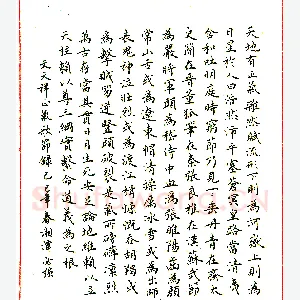 天地有正氣雜然賦流形下則為河嶽上則為
日星於人曰浩然沛乎塞蒼冥皇路當清夷
含和吐明庭時窮節乃見一一垂丹青在齊太
史簡在晉董狐筆在秦張良椎在漢蘇武節
為嚴將軍頭為嵇侍中血為張睢陽齒為顏
常山舌或為遼東帽清操厲冰雪或為出師
表鬼神泣壯烈或為渡江楫慷慨吞胡羯或
為擊賊笏逆豎頭破裂是氣所磅礴凜烈
萬古存當其貫日月生死安足論地維賴以立
天柱賴以尊三綱實繫命道義為之根
文天祥正氣歌節錄己巳年春湘潭